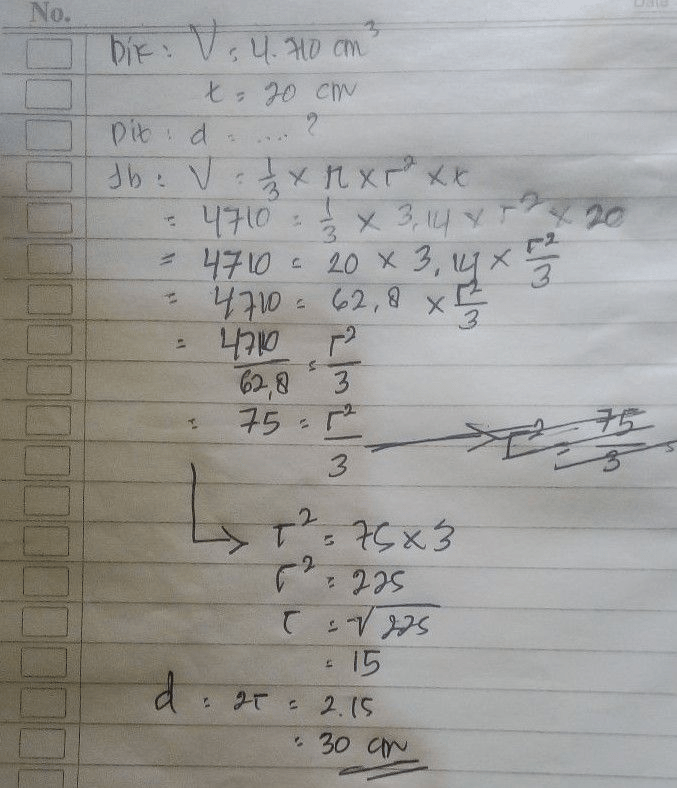 No. Date
Dik : V = 4.710 cm³
t = 20 cm
Dit : d = .... ?
Jb : V = 1/3 × π × r² × t
= 4710 = 1/3 × 3,14 × r² × 20
= 4710 = 20 × 3,14 × r²/3
= 4710 = 62,8 × r²/3
= 4710/62,8 = r²/3
= 75 = r²/3 → r² = 75/3
↳ r² = 75 × 3
r² = 225
r = √225
= 15
d = 2r = 2.15
= 30 cm